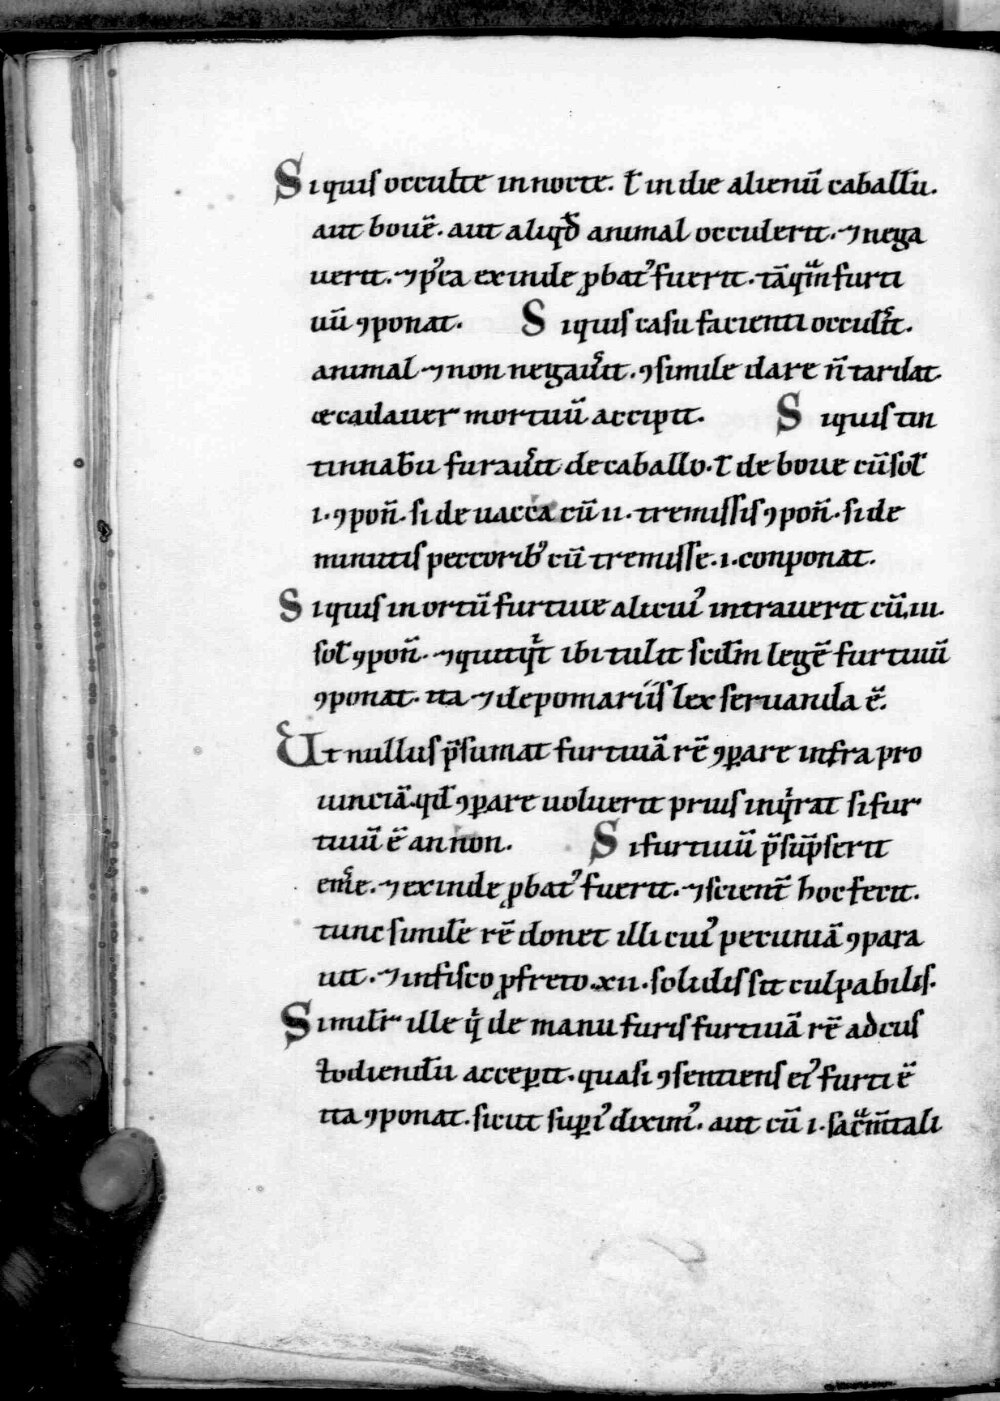 Siquis occulte in nocte. ł in die alienū caballū.
aut bouē. aut aliqđ animal occulerit. ⁊ nega
uerit. ⁊ p᾽ea exinde ꝓbat᾽ fuerit. tāqᵃm furti
uū ꝯponat. Siquis casu facienti occulŕit.
animal ⁊ non negaúit. ꝯsimile dare ñ tardat.
& cadauer mortuū accipit. Siquis tin
tinnabū furaúit de caballo. ł de boue cū sol
.i. ꝯpoñ. si de uacca cū .ii. tremissis ꝯpoñ. si de
minutis peccorib᾽ cū tremisse .i. conponat.
Siquis in ortū furtiue alicui᾽ intrauerit cū .iii.
sol ꝯpoñ. ⁊ quitqⁱt ibi tulit scđm legē furtiuū
ꝯponat. ita ⁊ de pomariis lex seruanda ē.
Ut nullus p̄sumat furtiuā rē ꝯꝑare infra pro
uinciā. qđ ꝯꝑare uoluerit prius inqⁱrat si fur
tiuū ē an non. Si furtiuū p̄sūpserit
em̄e. ⁊ exinde ꝓbat᾽ fuerit. ⁊ scient̄ hoc fecit.
tunc simile rē donet illi cui᾽ pecuniā ꝯpara
uit. ⁊ in fisco ꝓ freto .xii. solidis sit culpabilis.
Similr̄ ille qⁱ de manu furis furtiuā rē ad cus
todiendū acceꝑit. quasi ꝯsentiens ei᾽ furti ē
ita ꝯponat. sicut suꝑi᾽ dixim᾽. aut cū .i. sacᵃm̄tali